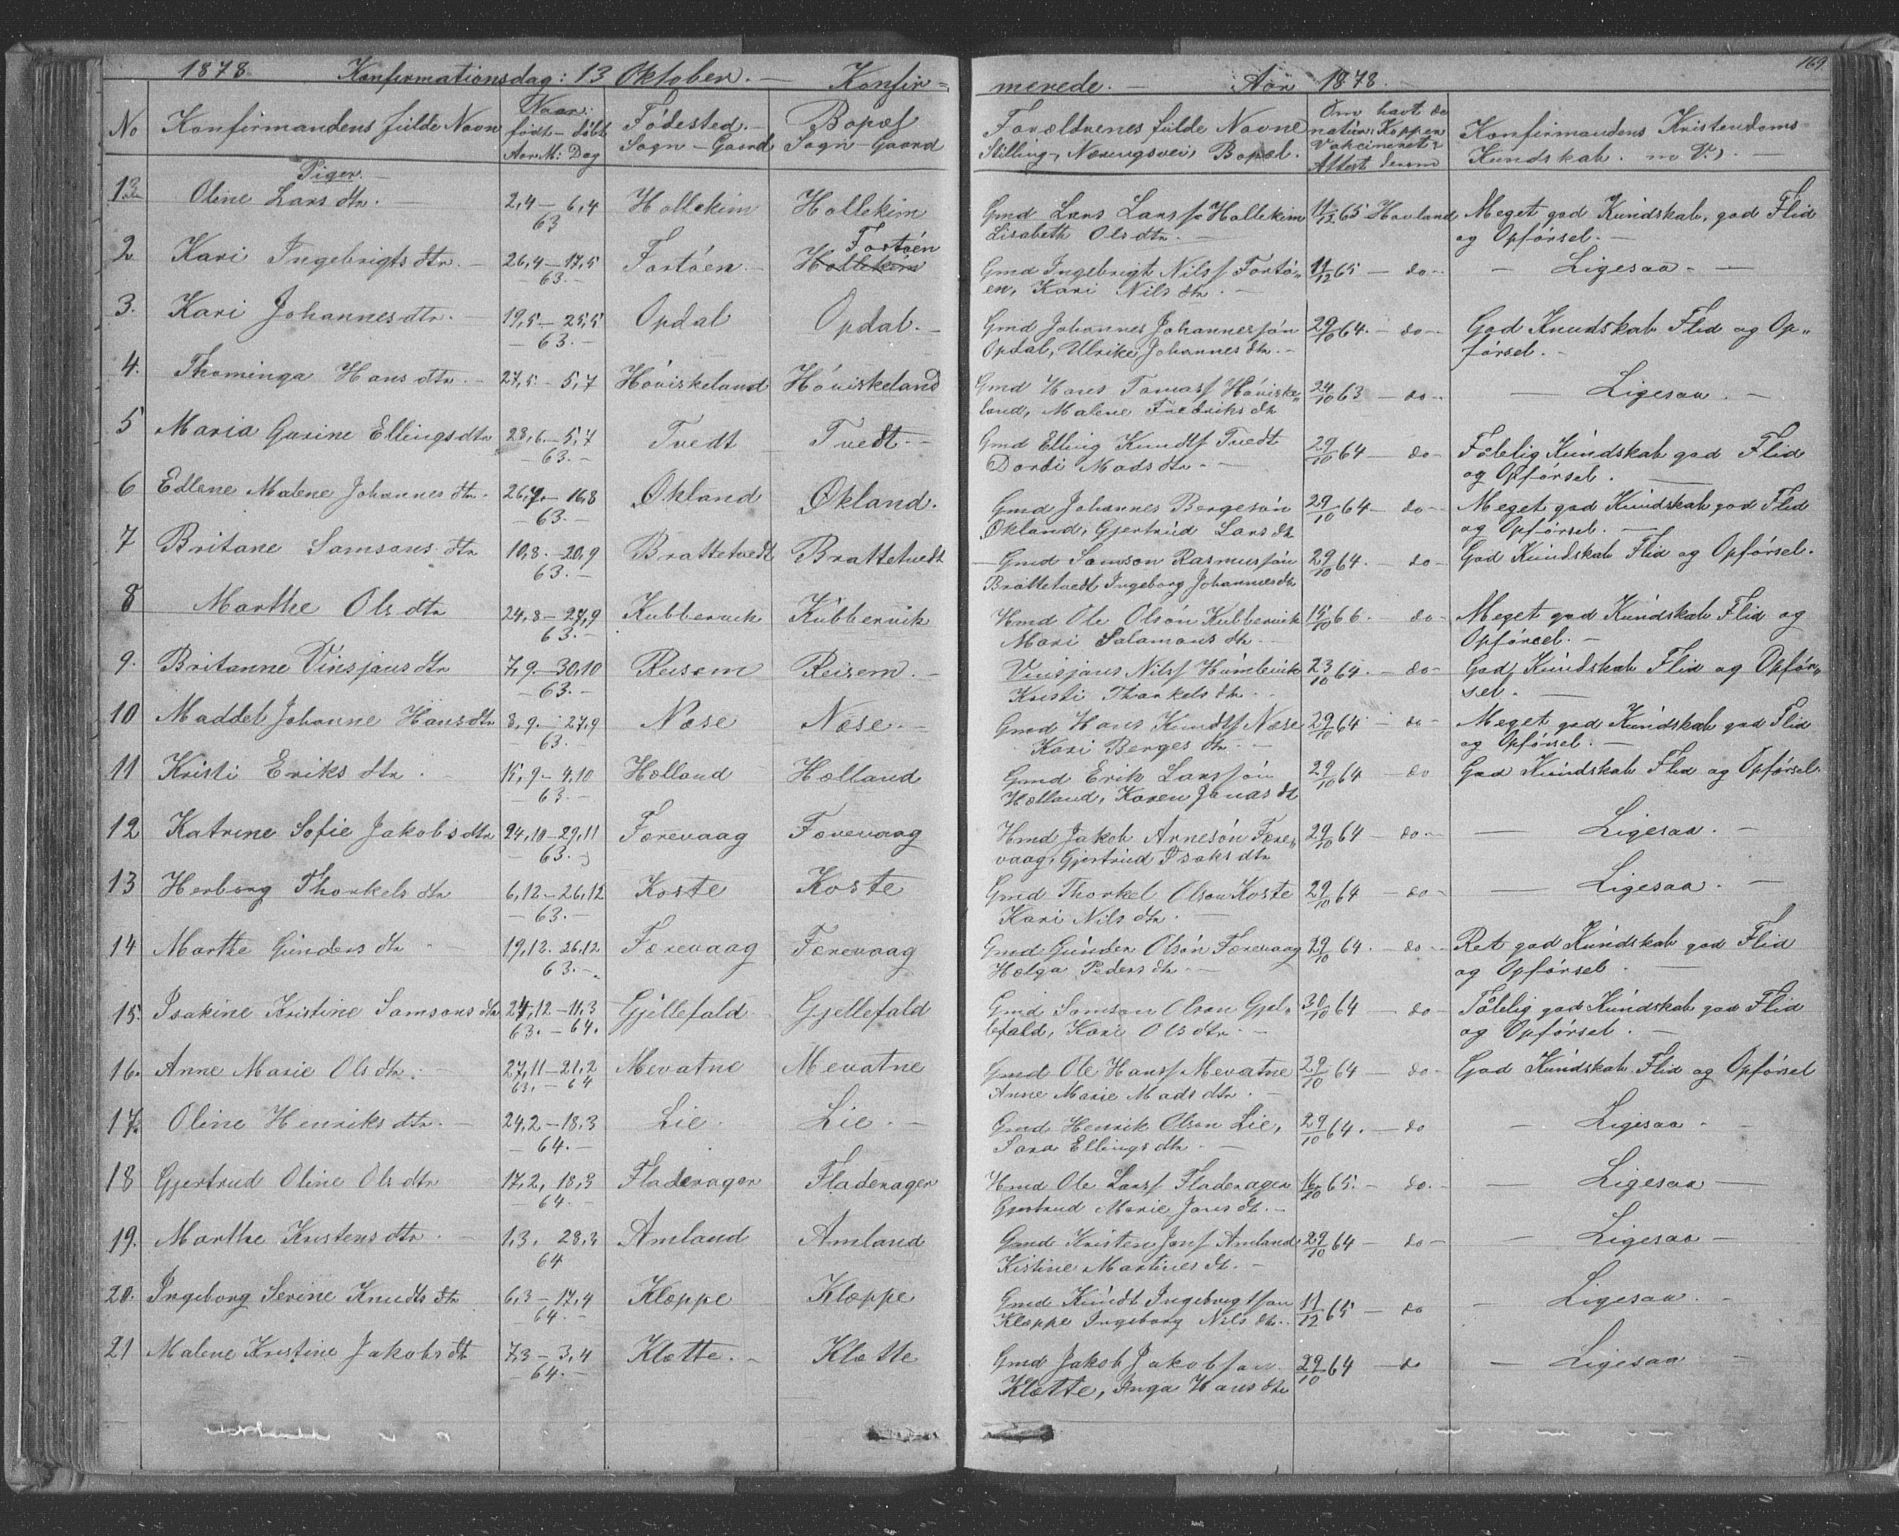 1878. Konfirmationsdag: 13 Oktober. — Konfir=
No Konfirmandens fulde Navn Naar: Fødested. Bopæl
født – døbt Sogn – Gaard Sogn – Gaard
Aar M: Dag
Piger. —
1 Oline Lars dtr. 2,4 – 6,4 Hollekim Hollekim
63
2 Kari Ingebrigts dtr. 26,4 – 17,5 Fortøen Fortøen
63. Hollekim
3. Kari Johannes dtr. 19,5 – 25,5 Opdal Opdal.
63.
4. Thominga Hans dtr. 27,5 – 5,7 Høviskeland Høviskeland
5 Maria Gurine Ellings dtr 23,6 – 5,7 Tvedt Tvedt
63.
6 Edlene Malene Johannes dtr. 26,7 – 16,8 Økland Økland.
63.
7 Britane Samsons dtr 10,8. – 20,9 Brattetvedt Brattetvedt
63.
8 Marthe Ols dtr 24,8 – 27,9 Kubbervik Kubbervik
63.
9. Britanne Vinsjans dtr 7,9 – 30,10 Reisem Reisem.
63.
10 Maddel Johanne Hans dtr 8,9. – 27,9 Næse Næse.
63.
11 Kristi Eriks dtr. 15,9 – 4,10 Hælland Hælland
63.
12 Katrine Sofie Jakobs dtr 24,10 – 29,11 Færevaag Færevaag
63.
13 Herborg Thorkels dtr 6,12. – 26,12 Koste Koste
63.
14 Marthe Gunders dtr 19,12. 26,12 Færevaag Færevaag
63.
15. Isakine Kristine Samsons dtr 24,12 – 11,3 Gjellefald Gjellefald
63. – 64.
16. Anne Marie Ols dtr. 27,11 – 21,2 Mevatne Mevatne
63. – 64
17. Oline Henriks dtr. 24,2 – 18,3 Lie. Lie.
64.
18 Gjertrud Oline Ols dtr 17,2, 18,3 Fladerager Fladerager
64.
19. Marthe Kristens dtr. 1,3, 28,3 Amland Amland
64
20. Ingeborg Serine Knudts dtr 6,3 – 17,4 Kloppe Kloppe
64.
21 Malene Kristine Jakobs dtr 7,3 – 3,4 Klætte. Klætte
64.
169
merede. — Aar 1878.
Forældrenes fulde Navne Om havt de Konfirmandens Kristendoms
Stilling, Næringsvei, Bopæl. natur: Kopper Kundskab. m V.)
Vakcineret?
Attest derom
Gmd Lars Larss Hollekim 11/12 65 Hovland Meget god Kundskab, god Flid
Lisabeth Ols dtr. og Opførsel.
Gmd Ingebrigt Nilss Fortø= 11/12 65 – do – Ligesaa.
en, Kari Nils dtr.
Gmd Johannes Johannessøn 29/10 64. – do – God Knudskab Flid og Op=
Opdal, Ulrike Johannes dtr. førsel.
Gmd Hans Tomass Høviske= 24/10 63 – do – Ligesaa.
land, Malene Fredriks dtr
Gmd Elling Knudts Tvedt 29/10 64 – do – Tålelig Kundskab god Flid
Dordi Mads dtr. og Opførsel.
Gmd Johannes Bergesøn 29/10 64 – do – Meget god Kundskab god Flid
Økland, Gjertrud Lars dtr og Opførsel.
Gmd Samson Rasmussøn 29/10 64. – do – God Kundskab Flid og Opførsel.
Brattetvedt Ingeborg Johannes dtr
Hmd Ole Olsøn Kubbervik 15/10 66. – do – Meget god Kundskab Flid og
Mari Salamons dtr. Opførsel.
Vinsjans Nilss Humlevik 23/10 64. – do – God Kundskab Flid og Opfør=
Kristi Thorkels dtr. sel.
Gmd Hans Knudts Næse 29/10 64. – do – Meget god Kundskab god Flid
Kari Berges dtr. og Opførsel.
Gmd Erik Larssøn 29/10 64 – do God Kundskab Flid og Opførsel.
Hælland, Karen Jonas dtr
Hmd Jakob Arnesøn Fære= 29/10 64 – do. – Ligesaa.
vaag, Gjertrud Isaks dtr
Gmd Thorkel Olson Koste 29/10 64 – do – Ligesaa.
Kari Nils dtr.
Gmd Gunder Olsøn Færevaag 29/10 64. – do – Ret god Kundskab god Flid
Helga Peders dtr. og Opførsel.
Gmd Samson Olson Gjel= 30/10 64 – do – Tålelig god Kundskab god Flid
lefald, Kari Ols dtr. og Opførsel.
Gmd Ole Hanss Mevatne 29/10 64 – do – God Kundskab Flid og Opførsel
Anne Marie Mads dtr.
Gmd Henrik Olson Lie, 29/10 64. – do – Ligesaa
Sara Ellings dtr.
Hmd Ole Larss Fladerager 16/10 65. – do. – Ligesaa
Gjertrud Marie Jans dtr.
Gmd Kristen Jons Amland 29/10 64 – do – Ligesaa
Kistine Martines dtr.
Gmd Knudt Ingebrigtson 11/12 65 – do – Ligesaa.
Kloppe Ingeborg Nils dtr.
Gmd Jakob Jakobson 29/10 64 – do – Ligesaa
Klætte, Inga Hans dtr